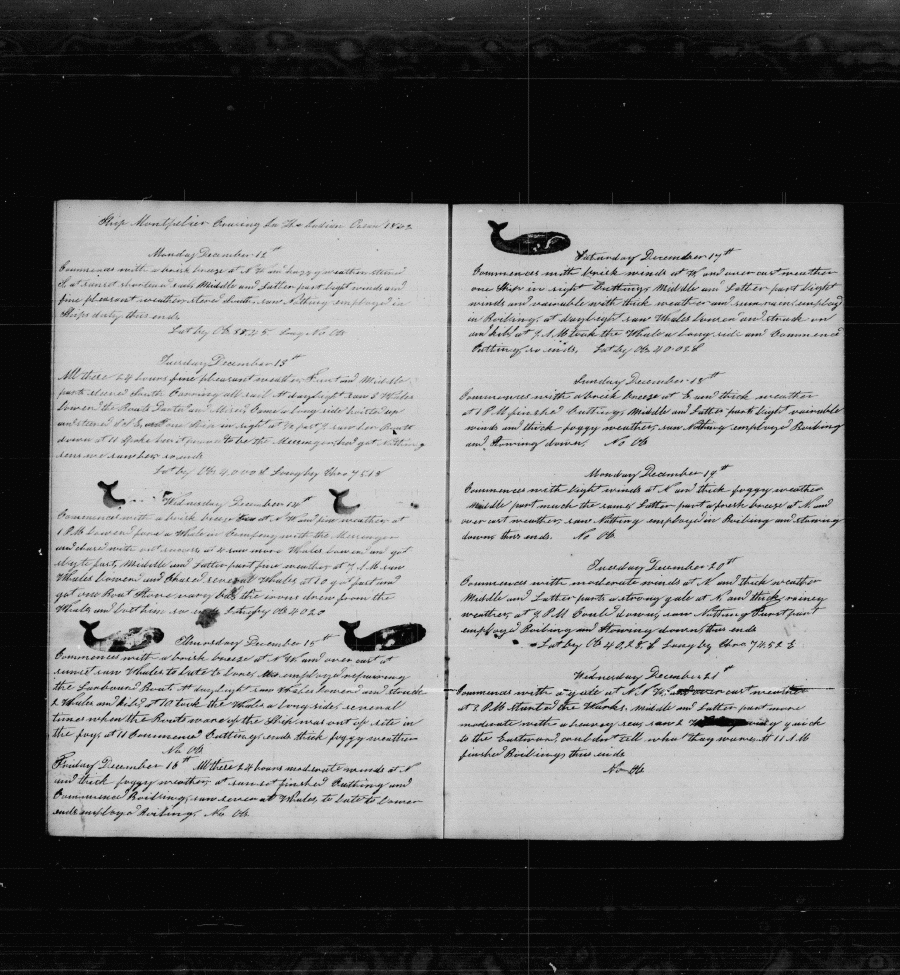 Ship Montpelier Cruising In The Indian Ocean 1853
Monday December 12th
Commences with a brisk breeze at N W and foggy weather steered
S, at sunset shortened sail Middle and Latter part light winds and
fine pleasant weather steered South, saw Nothing employed in
Ships duty thus ends
Lat by Ob 38.25 Long No Ob
Tuesday December 13th
All these 24 hours fine pleasant weather, First and Middle
parts steered South Carrying all sail At daylight saw 3 Whales
lowered the Boats
and steered S by E, one Ship in sight at
down at 11 Spoke her proved to be the Messenger had got Nothing
seas we saw her, so ends
Lat by Ob 40.00 S Long by Chro 75.18
Wednesday December 14th
Commences with a brisk breeze at N W and fine weather at
1 P.M. Lowered for a Whale in Company with the Messenger
and chased with out success at 4 saw more Whales Lowered and got
Middle and Latter part fine weather, at 7 A.M. saw
Whales lowered and Chased several Whales at 10 got fast and
got one Boat Stove very bad, the irons drew from the
Whale, and lost him so ends Lat by Ob 40.20
Thursday December 15th
Commences with a brisk breeze at N W. and over cast at
sunset saw Whales to late to lower, employed repairing
the Larboard Boat At daylight saw Whales lowered and struck
2 Whales and killed at 10 took the Whales a long side, several
times when the Boats ware of the Ship was out of site in
the fog, at 11 Commenced Cutting, ends thick foggy weather
No Ob
Friday December 16th All these 24 hours moderate winds at N
and thick foggy weather, at sunset finished Cutting and
Commenced Boiling, saw several Whales, to late to lower
ends employed Boiling, No Ob
Saturday December 17th
Commences with brisk winds at W and over cast weather
one Ship in sight Cutting, Middle and Latter part light
winds and vairable with thick weather and some rain employed
in Boiling, at daylight saw Whales lowered and struck on
and kild at 7 A.M. took the Whale a long side and Commenced
Cutting, so ends, Lat by Ob 40.02 S
Sunday December 18th
Commences with a brisk breeze at E and thick weather
at 1 P.M. finished Cutting, Middle and Latter parts light vairable
winds and thick foggy weather, saw Nothing employed Boiling
and Stowing down, No Ob
Monday December 19th
Commences with light winds at N and thick foggy weather
Middle part much the same, Latter part a fresh breeze at N, and
over cast weather, saw Nothing employed in Boiling and stowing
down thus ends. No Ob
Tuesday December 20th
Commences with moderate winds at N and thick weather
Middle and Latter parts a strong gale at N, and thick rainey
weather, at 7 P.M. Could down, saw Nothing First part
employed Boiling and Stowing down, thus ends
Lat by Ob 40.28 S Long by Chro 74.52 E
Wednesday December 21st
Commences with a gale at N. W. over cast weather
at 2 P.M. Started the Works, Middle and Latter part more
moderate with a heavey sea, saw 2 going quick
to the Eastward, could not tell what they ware, At 11 A.M
finshed Boiling, thus ends
No Ob